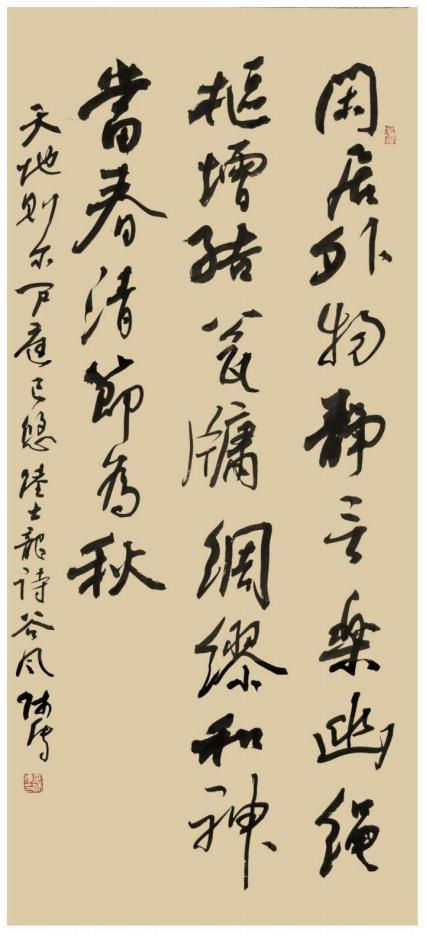 閑居外物靜言樂幽繩
樞增結瓮牖綢繆和神
當春清節為秋
天地則尔戶庭已悠陸士龍詩谷風